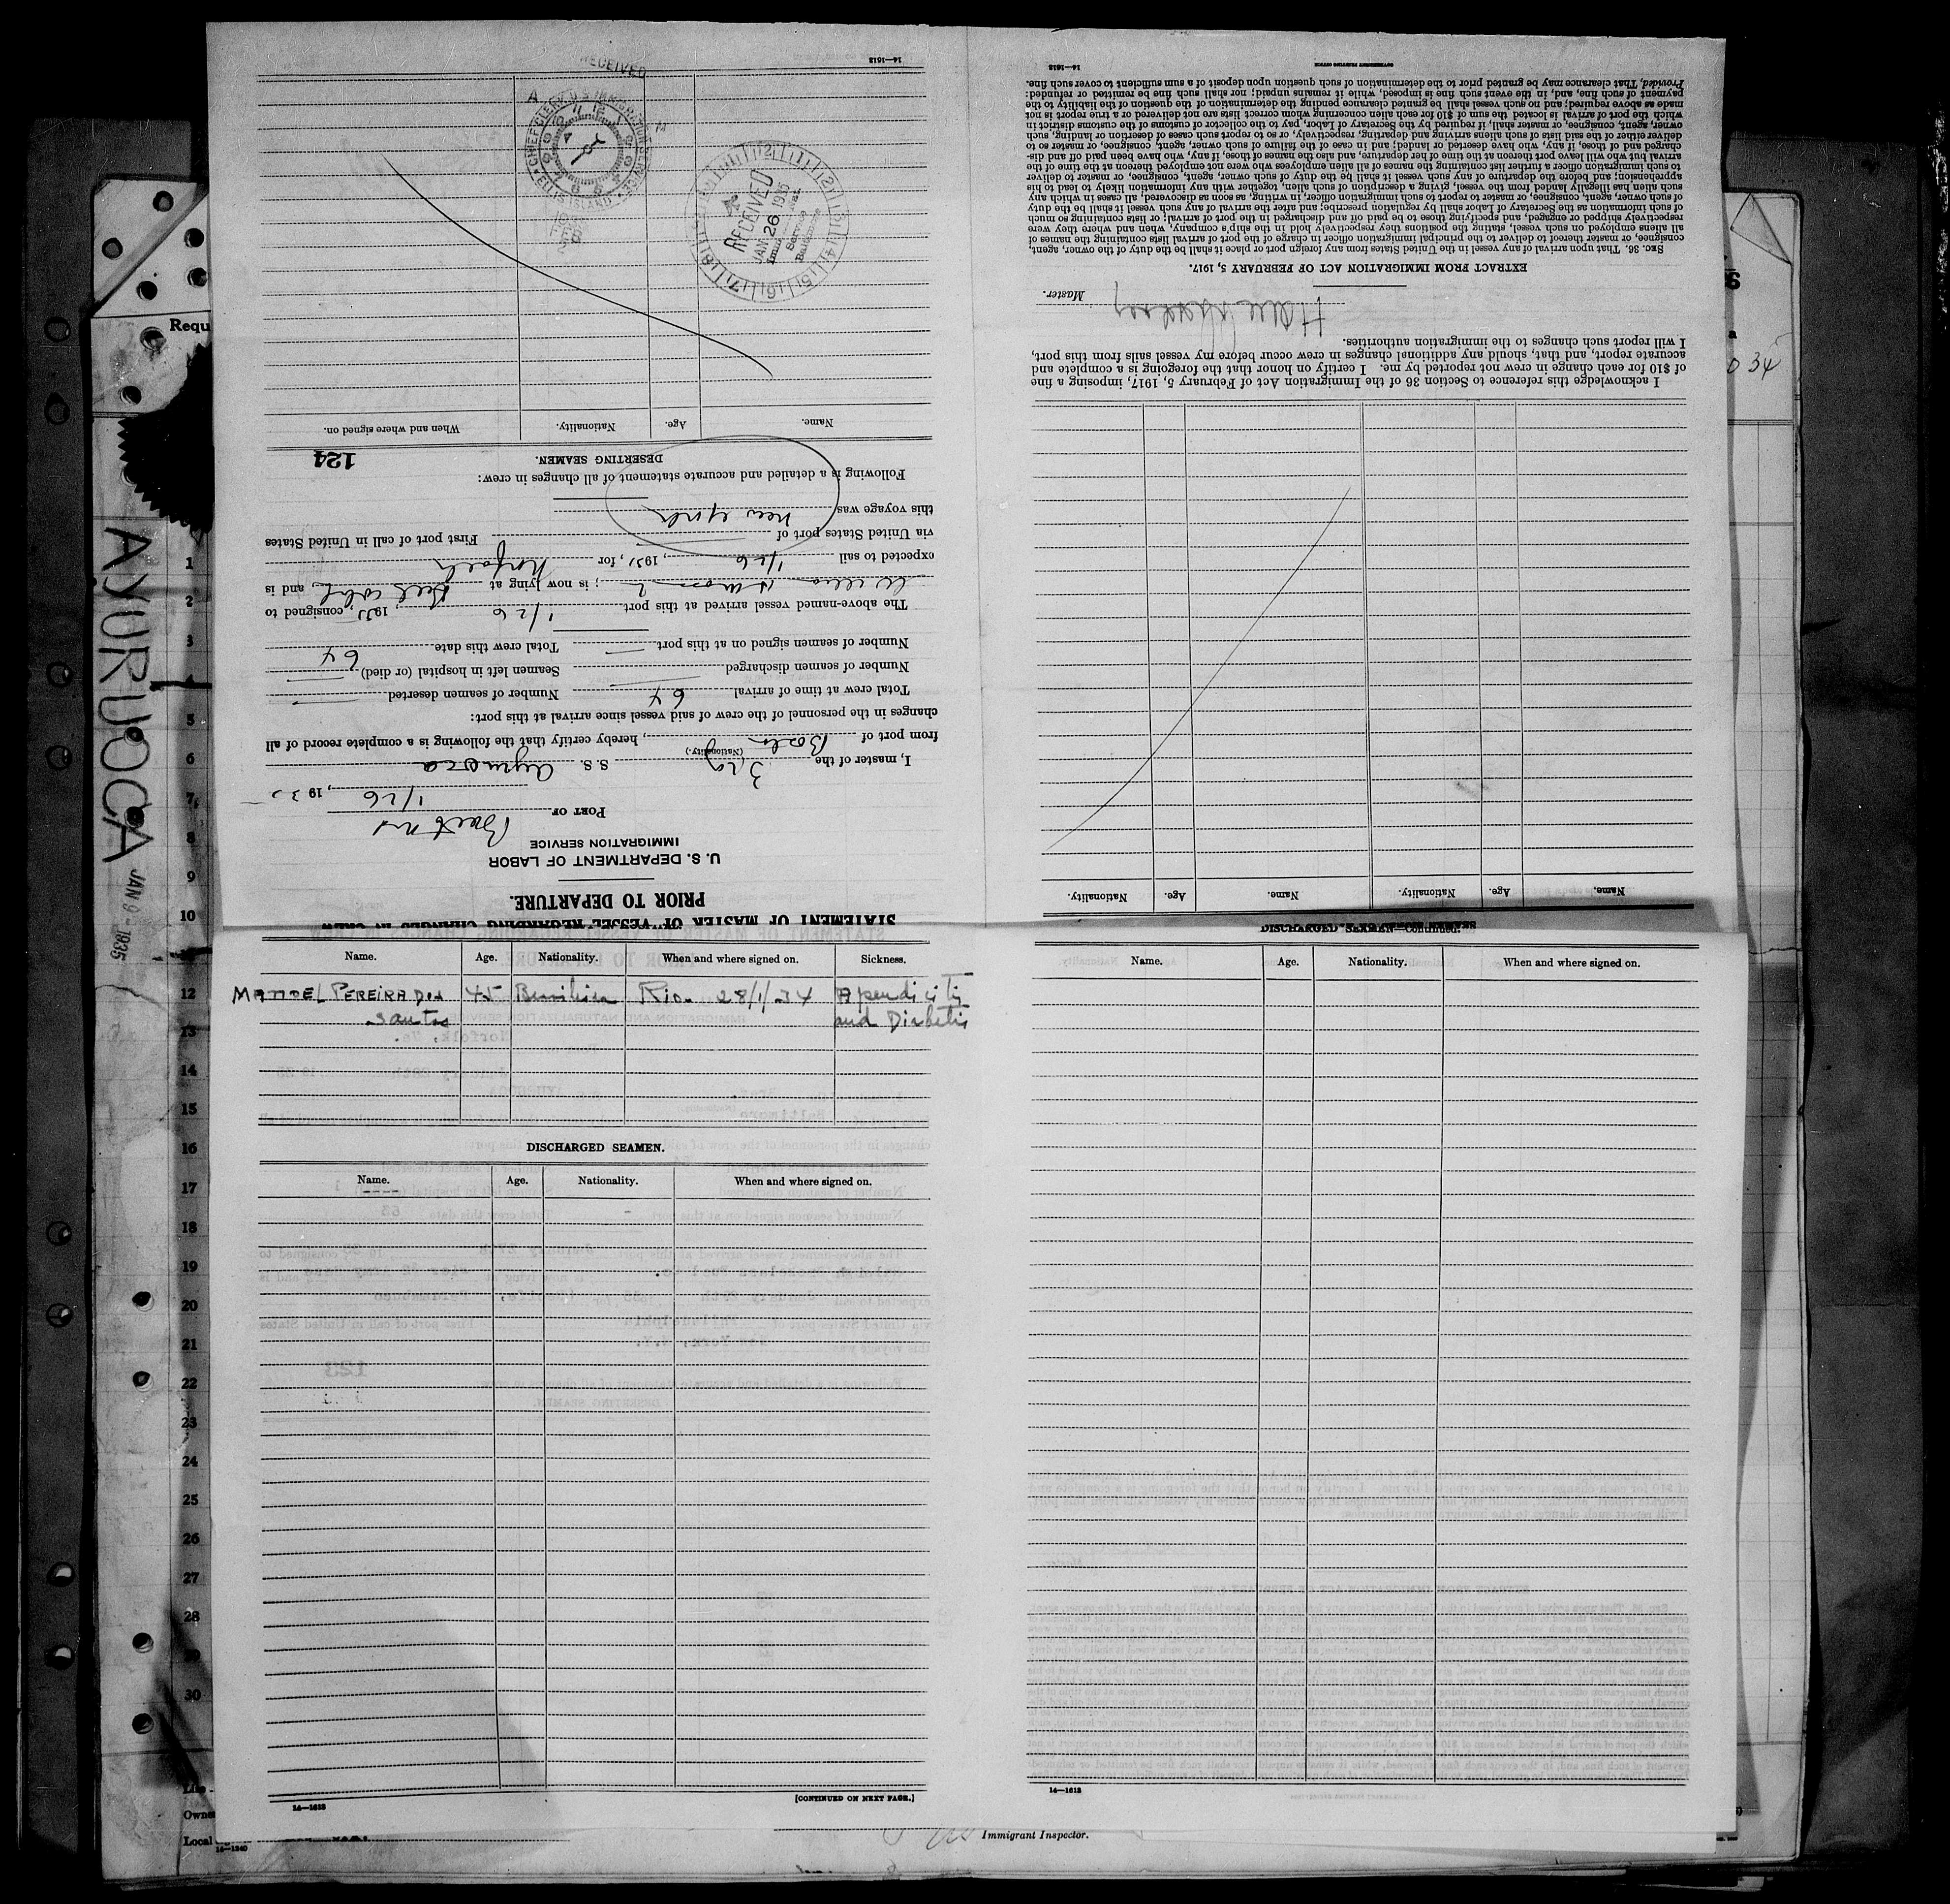 AYURUOCA
JAN 9-1935
Requ
1
2
3
4
5
6
7
8
9
10
12
13
14
15
16
17
18
19
20
21
22
23
24
25
26
27
28
29
30
Owne
Local
14—1240
34
STATEMENT OF MASTER OF VESSEL REGARDING CHANGES IN CREW
PRIOR TO DEPARTURE.
U. S. DEPARTMENT OF LABOR
IMMIGRATION SERVICE
PORT OF
1/26, 193
I, master of the S. S. Ayuruoca
(Nationality.)
from port of Boston, hereby certify that the following is a complete record of all
changes in the personnel of the crew of said vessel since arrival at this port:
Total crew at time of arrival 64 Number of seamen deserted
Number of seamen discharged Seamen left in hospital (or died)
Number of seamen signed on at this port Total crew this date 64
The above-named vessel arrived at this port 1/26 193 consigned to
; is now lying at , and is
expected to sail 1/26, 193, for Norfolk
via United States port of First port of call in United States
this voyage was New York
Following is a detailed and accurate statement of all changes in crew:
DESERTING SEAMEN.
124
Name. Age. Nationality. When and where signed on.
RECEIVED
JAN 26 1935
Immigration Service
Baltimore
RECEIVED
CHIEF CLERK U S IMMIGRATION SERVICE
ELLIS ISLAND
14—1613
Name. Age. Nationality. Name. Age. Nationality.
I acknowledge this reference to Section 36 of the Immigration Act of February 5, 1917, imposing a fine
of $10 for each change in crew not reported by me. I certify on honor that the foregoing is a complete and
accurate report, and that, should any additional changes in crew occur before my vessel sails from this port,
I will report such changes to the immigration authorities.
Master.
EXTRACT FROM IMMIGRATION ACT OF FEBRUARY 5, 1917.
SEC. 36. That upon arrival of any vessel in the United States from any foreign port or place it shall be the duty of the owner, agent,
consignee, or master thereof to deliver to the principal immigration officer in charge of the port of arrival lists containing the names of
all aliens employed on such vessel, stating the positions they respectively hold in the ship's company, when and where they were
respectively shipped or engaged, and specifying those to be paid off and discharged in the port of arrival; or lists containing so much
of such information as the Secretary of Labor shall by regulation prescribe; and after the arrival of any such vessel it shall be the duty
of such owner, agent, consignee, or master to report to such immigration officer, in writing, as soon as discovered, all cases in which any
such alien has illegally landed from the vessel, giving a description of such alien, together with any information likely to lead to his
apprehension; and before the departure of any such vessel it shall be the duty of such owner, agent, consignee, or master to deliver
to such immigration officer a further list containing the names of all alien employees who were not employed thereon at the time of the
arrival but who will leave port thereon at the time of her departure, and also the names of those, if any, who have been paid off and dis-
charged and of those, if any, who have deserted or landed; and in case of the failure of such owner, agent, consignee, or master so to
deliver either of the said lists of such aliens arriving and departing, respectively, or so to report such cases of desertion or landing, such
owner, agent, consignee, or master shall, if required by the Secretary of Labor, pay to the collector of customs of the customs district in
which the port of arrival is located the sum of $10 for each alien concerning whom correct lists are not delivered or a true report is not
made as above required; and no such vessel shall be granted clearance pending the determination of the question of the liability to the
payment of such fine, and, in the event such fine is imposed, while it remains unpaid; nor shall such fine be remitted or refunded:
Provided, That clearance may be granted prior to the determination of such question upon deposit of a sum sufficient to cover such fine.
GOVERNMENT PRINTING OFFICE
14—1613
Name. Age. Nationality. When and where signed on. Sickness.
MANOEL PEREIRA Dos 45 Brasilian Rio. 28/1/34 Apendicitis
santos and Diabetis
DISCHARGED SEAMEN.
Name. Age. Nationality. When and where signed on.
----
14—1613
[CONTINUED ON NEXT PAGE.]
DISCHARGED SEAMEN—Continued.
Name. Age. Nationality. When and where signed on.
14—1613
Immigrant Inspector.